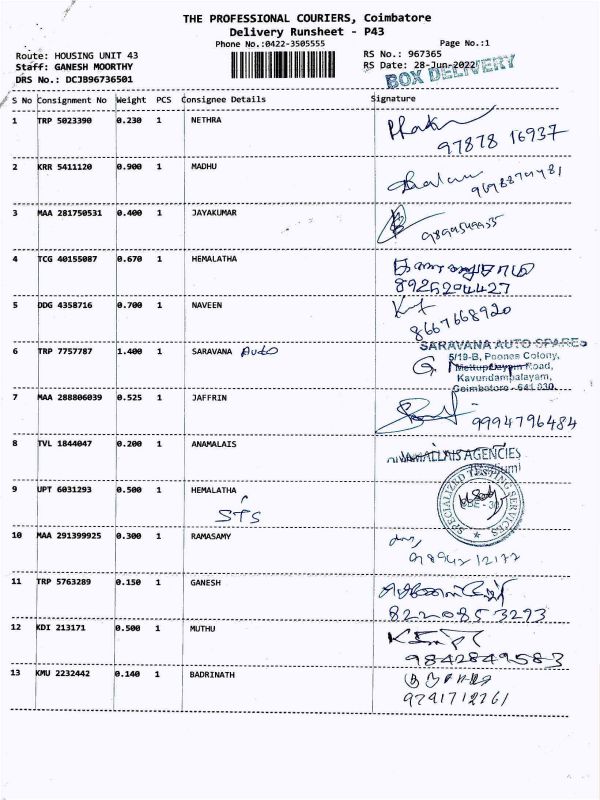 THE PROFESSIONAL COURIERS, Coimbatore
Delivery Runsheet - P43
Phone No.:0422-3505555 Page No.:1
Route: HOUSING UNIT 43 RS No.: 967365
Staff: GANESH MOORTHY RS Date: 28-Jun-2022
DRS No.: DCJB96736501 BOX DELIVERY
S No Consignment No Weight PCS Consignee Details Signature
1 TRP 5023390 0.230 1 NETHRA
97878 16937
2 KRR 5411120 0.900 1 MADHU
3 MAA 281750531 0.400 1 JAYAKUMAR
4 TCG 40155087 0.670 1 HEMALATHA
8925204427
5 DDG 4358716 0.700 1 NAVEEN
8667668920
6 TRP 7757787 1.400 1 SARAVANA Auto
SARAVANA AUTO SPARES
5/19-B, Poonga Colony,
Mettuppalayam Road,
Kavundampalayam,
Coimbatore - 641 030.
7 MAA 288806039 0.525 1 JAFFRIN
9994796484
8 TVL 1844047 0.200 1 ANAMALAIS
AGENCIES
9 UPT 6031293 0.500 1 HEMALATHA
STS
SPECIALIZED TESTING SERVICES
CBE - 30
10 MAA 291399925 0.300 1 RAMASAMY
11 TRP 5763289 0.150 1 GANESH
8220853293
12 KDI 213171 0.500 1 MUTHU
9842849583
13 KMU 2232442 0.140 1 BADRINATH
9791712761